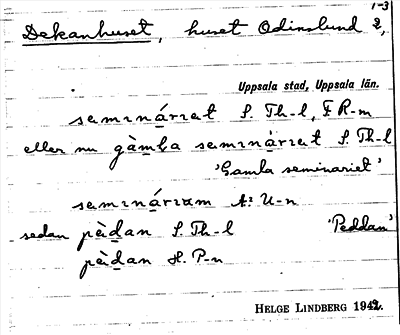 1-3
Dekanhuset, huset Odinslund 2,
Uppsala stad, Uppsala län.
semináriet S. Th-l, F. R-m
eller nu gàmla seminàriet S. Th-l
'Gamla seminariet'
semináriam A. U-n
sedan pèdan S. Th-l 'Peddan'
pèdan H. P-n
HELGE LINDBERG 1942.